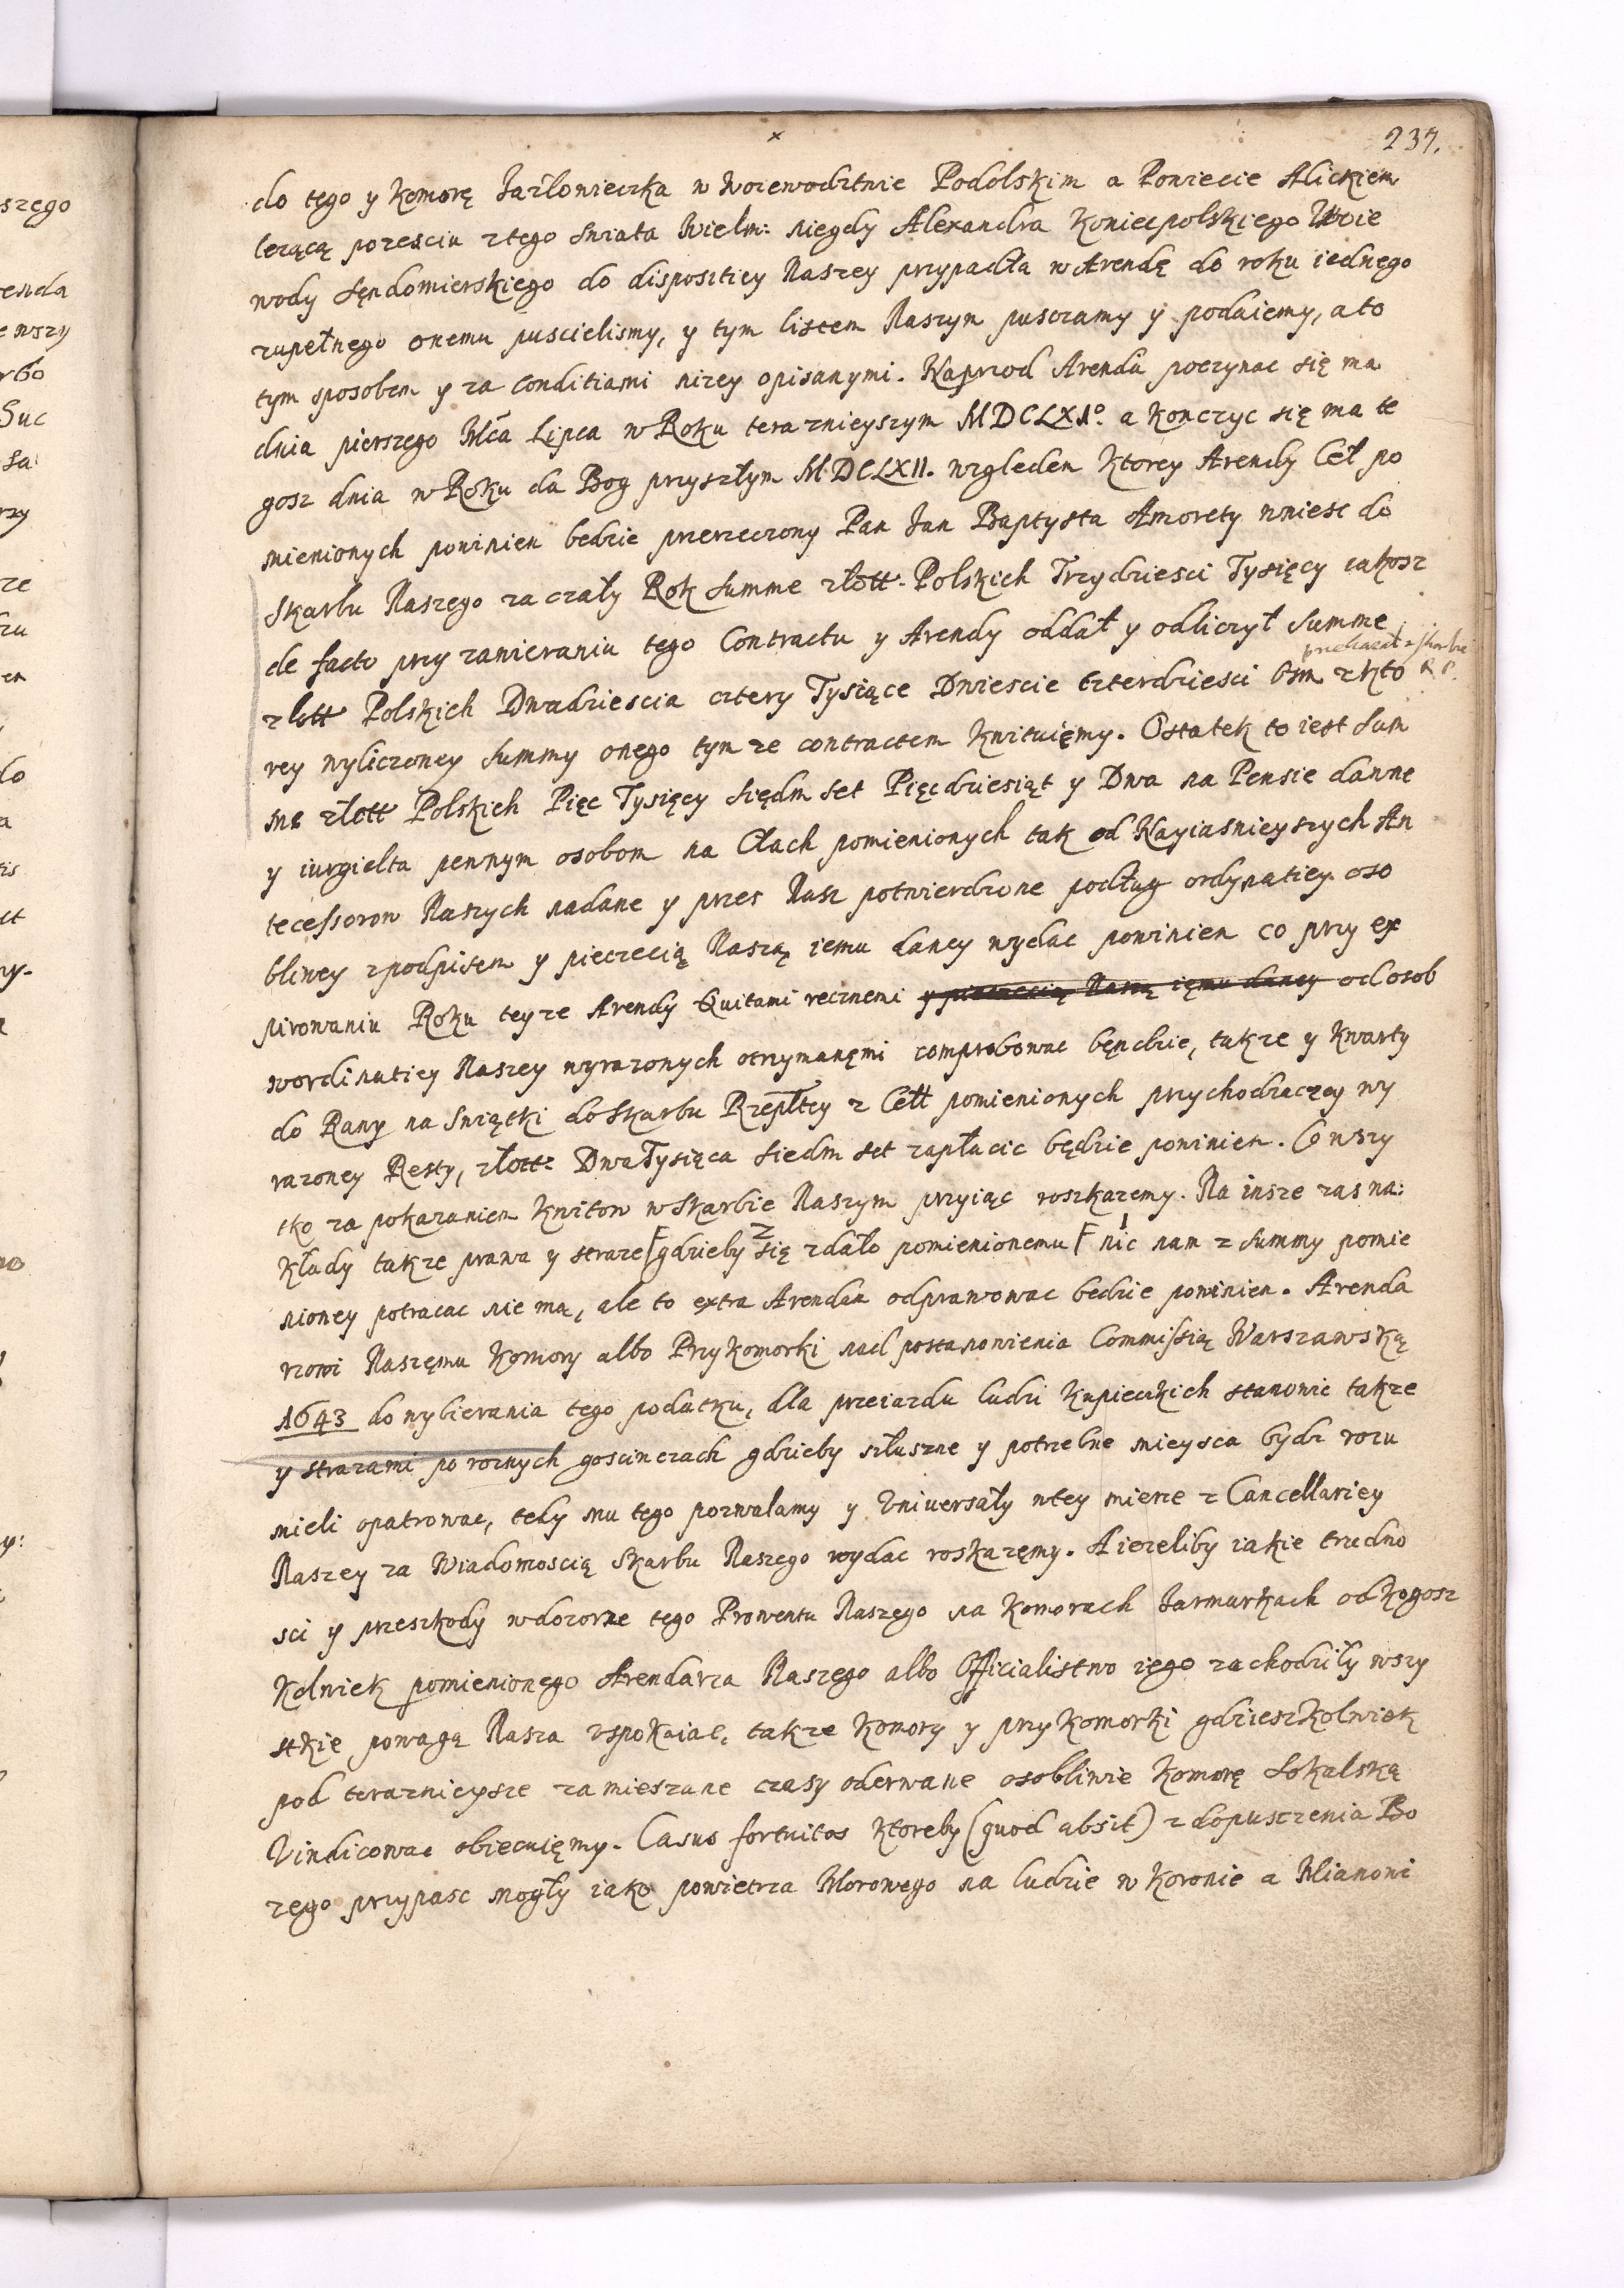 237.
do tego y Komorę Jazłowieczka w Woiewodztwie Podolskim a Powiecie Alickiem
lezącą pozesciu z tego swiata Wielm: niegdy Alexandra Koniecpolskiego Woie
wody Sęndomierskięgo do dispositiey Naszey przypadła w Arendę do roku iednęgo
zupełnego onemu puscielismy, y tym listem Naszym pusczamy y podaiemy, a to
tym sposobem y za Conditiami nizey opisanymi. Naprzod Arenda poczynac się ma
dnia pierszego Mca Lipca w Roku teraznieyszym MDCLXI°. a konczyc się ma te
gosz dnia w Roku da Bog przyszłym MDCLXII. wzgleden Ktorey Arendy Ceł po
mienionych powinien bedzie przerzeczony Pan Jan Baptysta Amorety wniesc do
Skarbu Naszego za czały Rok summe złott. Polskich Trzydziesci Tysięcy iakosz
de facto przy zawieraniu tego Contractu y Arendy oddał y odliczył summe
złott Polskich Dwadziescia cztery Tysiące Dwiescie Czterdziesci Osm z Kto
rey wyliczoney summy onego tym ze contractem Kwituięmy. Ostatek to iest sum
me złott Polskich Pięc Tysięcy siędm set Pięcdziesiąt y Dwa na Pensie dawne
y iurgielta pewnym osobom na Cłach pomienionych tak od Nayiasnieyszych An
tecessorow Naszych nadane y przes Nasz potwierdzone podług ordynatiey oso
bliwey z podpisem y pieczecią Naszą iemu daney wydac powinien co przy ex
pirowaniu Roku teyze Arendy Quitami recznemi y pieczecią Naszą ięmu daney od osob
w ordinatiey Naszey wyrazonych otrzymanęmi comprobowac będzie, takze y Kwarty
do Rawy na Swiątki do Skarbu Rzepltey z Cełł pomienionych przychodzaczey wy
razoney Resty, złott: Dwa Tysiąca siedm set zapłacic będzie powinien. Co wszy
tko za pokazaniem Kwitow w Skarbie Naszym przyiąc roszkazemy. Na insze zas na:
Kłady takze prawa y straze [gdzieby 2 się zdało pomienionemu [ 1 nic nam z summy pomie
nioney potracac nie ma, ale to extra Arendam odprawowac bedzie powinien. Arenda
rzowi Naszęmu Komory albo Przykomorki nad postanowienia Commissią Warszawską
1643 do wybierania tego podatku, dla przeiazdu ludzi Kupieckich stanowic takze
y strazami po roznych goscinczach gdzieby słuszne y potrzebne mieysca bydz rozu
mieli opatrowac, tedy mu tego pozwalamy y Universały w tey mierze z Cancellariey
Naszey za Wiadomoscią Skarbu Naszego wydac roskazęmy. A iezeliby iakie trudno
sci y przeszkody w dozorze tego Prowentu Naszego na Komorach Jarmarkach od Kogosz
Kolwiek pomienionego Arendarza Naszego albo Officialistwo ięgo zachodziły wszy
stkie powagą Nasza uspokaiac, takze Komory y przykomorki gdzieszkolwiek
pod terazniejsze zamieszane czasy oderwane osobliwie Komorę Sokalską
Vindicowac obiecuięmy. Casus fortuitos Ktoreby (quod absit) z dopusczenia Bo
zego przypasc mogły iako powietrza Morowego na ludzie w Koronie a Mianowi